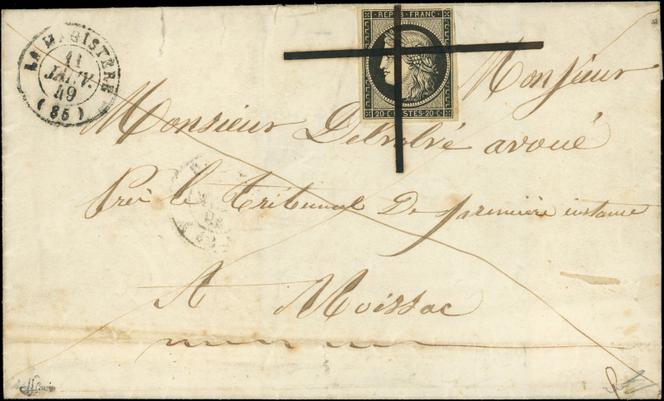 LA MAGISTÈRE
11
JANV.
49
(85)
REPUB. FRANC.
20 C POSTES 20 C
Monsieur
Monsieur Delbréré avoué
Près le Tribunal De première instance
A Moissac